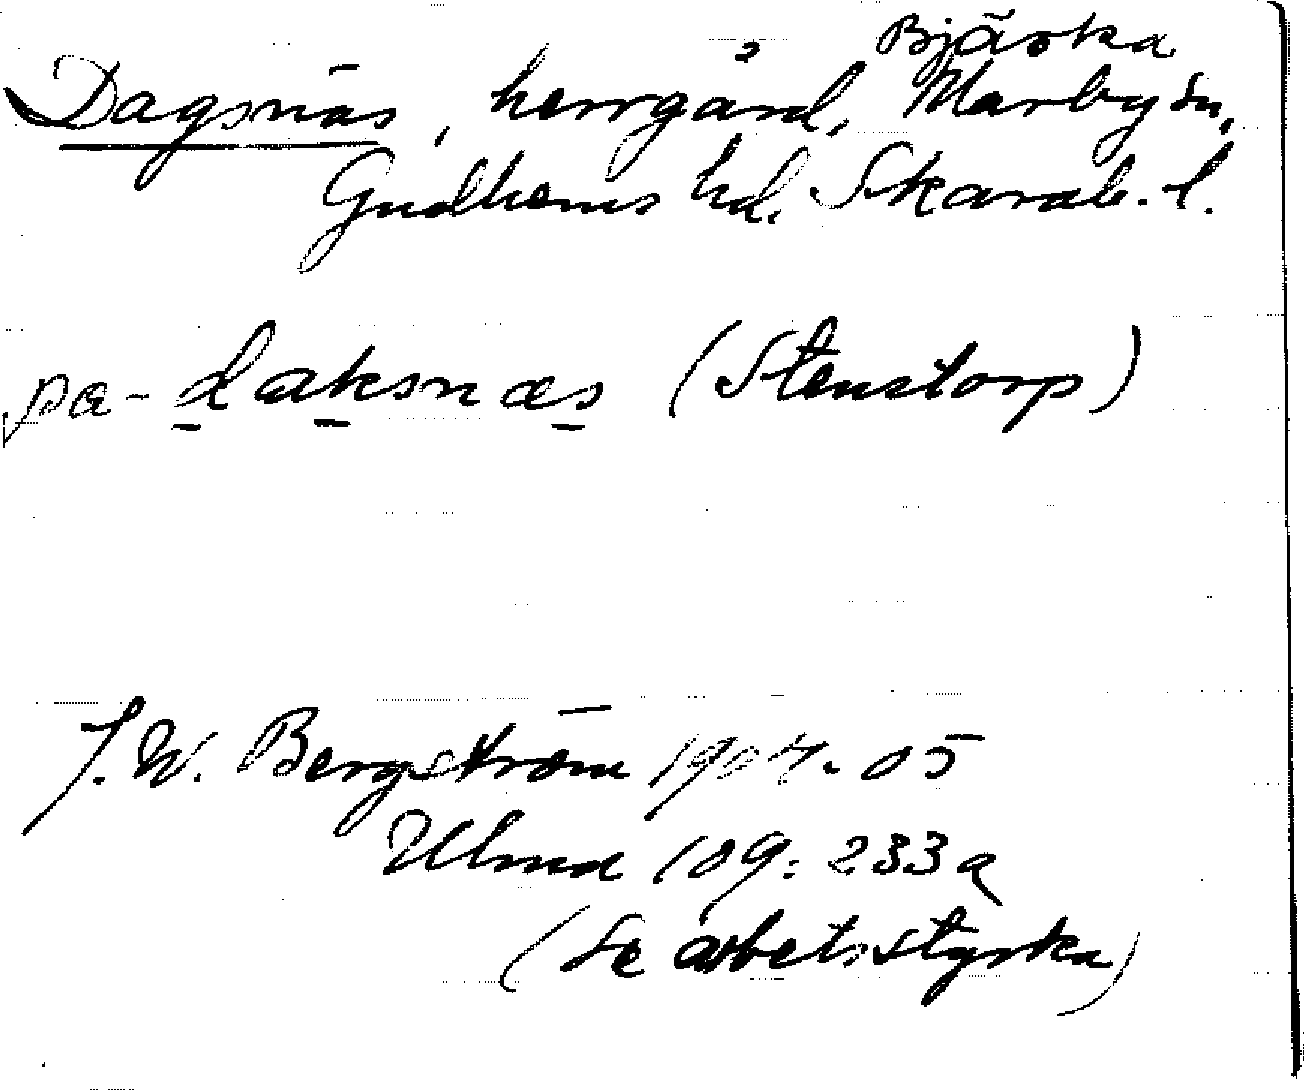 Bjärka
Dagsnäs, herrgård, Marby sn,
Gudhems hd. Skarab. l.
pa-daksnæs (Stenstorp)
J. W. Bergström 1904-05
Ulma 109: 233a
(Se arbetsstyrka)